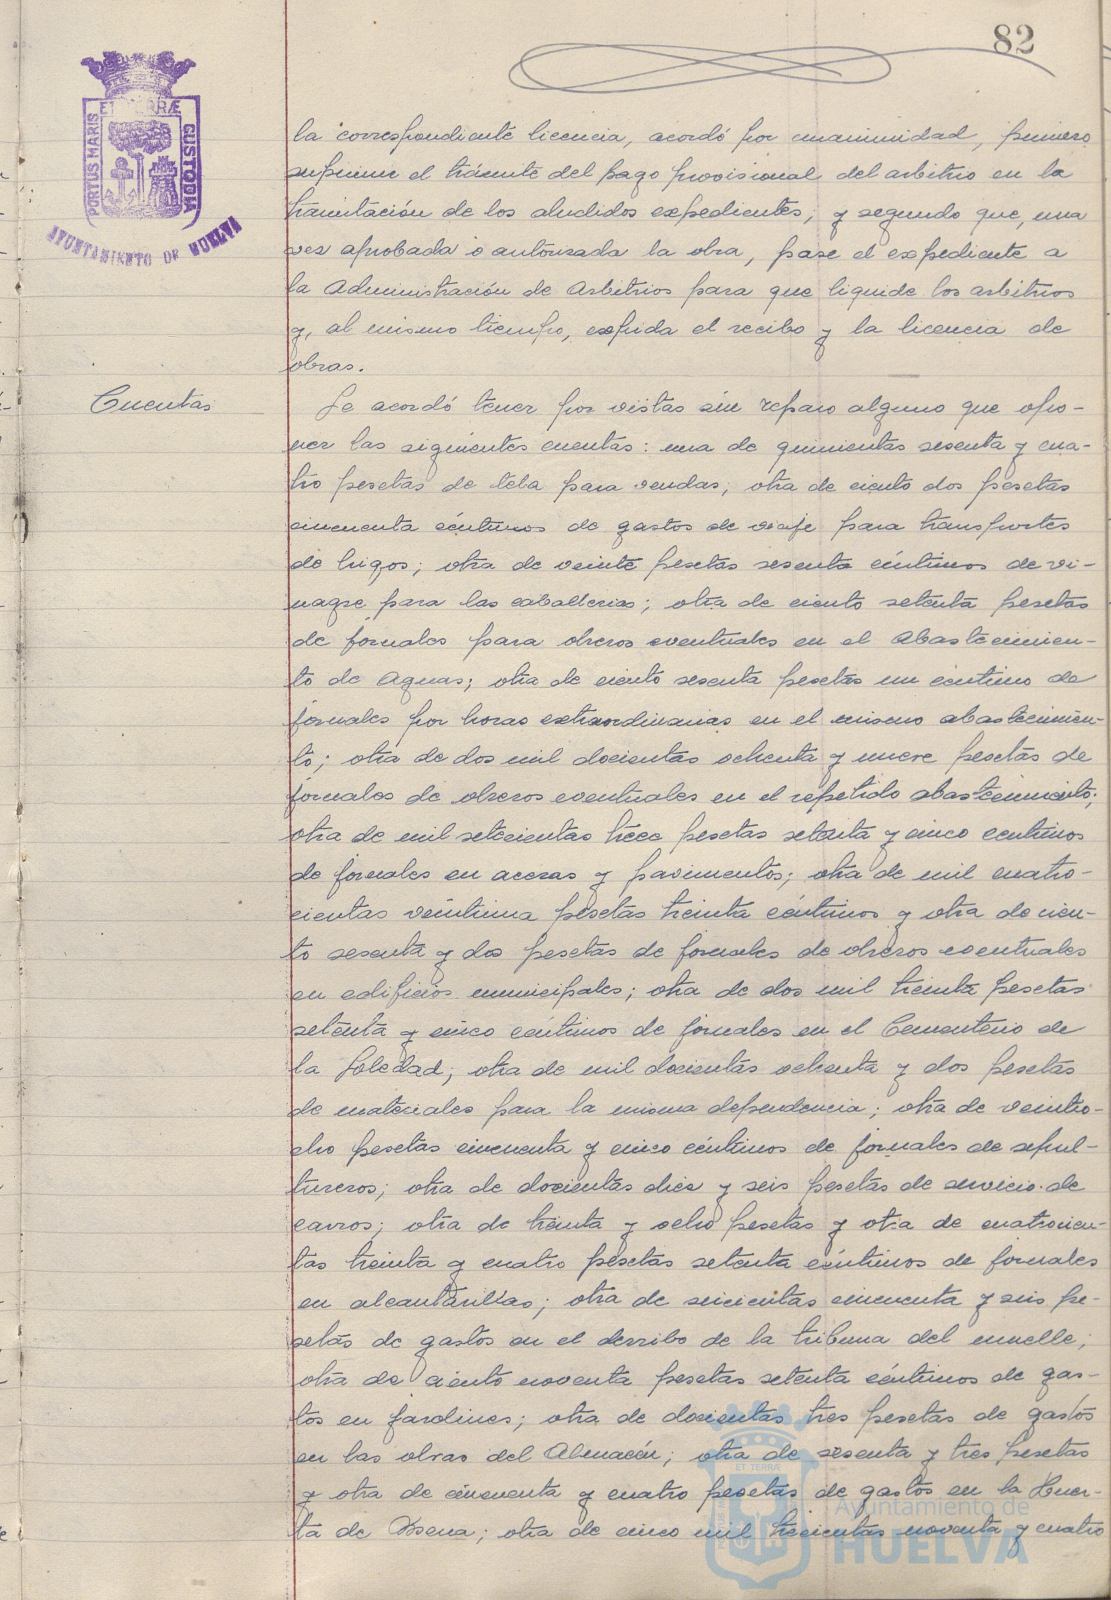 82
PORTUS MARIS
ET TERRÆ
CUSTODIA
AYUNTAMIENTO DE HUELVA
la correspondiente licencia, acordó por unanimidad, primero
suprimir el trámite del pago provisional del arbitrio en la
tramitación de los aludidos expedientes; y segundo que, una
vez aprobada o autorizada la obra, pase el expediente a
la Administración de Arbitrios para que liquide los arbitrios
y, al mismo tiempo, expida el recibo y la licencia de
obras.
Cuentas
Se acordó tener por vistas sin reparo alguno que opo-
ner las siguientes cuentas: una de quinientas sesenta y cua-
tro pesetas de tela para vendas; otra de ciento dos pesetas
cincuenta céntimos de gastos de viaje para transportes
de higos; otra de veinte pesetas sesenta céntimos de vi-
nagre para las caballerias; otra de ciento setenta pesetas
de jornales para obreros eventuales en el Abastecimien-
to de Aguas; otra de ciento sesenta pesetas un céntimo de
jornales por horas extraordinarias en el mismo abastecimien-
to; otra de dos mil docientas ochenta y nueve pesetas de
jornales de obreros eventuales en el repetido abastecimiento;
otra de mil setecientas trece pesetas setenta y cinco centimos
de jornales en aceras y pavimentos; otra de mil cuatro-
cientas veintiuna pesetas treinta céntimos y otra de cien-
to sesenta y dos pesetas de jornales de obreros eventuales
en edificios municipales; otra de dos mil treinta pesetas
setenta y cinco céntimos de jornales en el Cementerio de
la Soledad; otra de mil docientas ochenta y dos pesetas
de materiales para la misma dependencia; otra de veintio-
cho pesetas cincuenta y cinco céntimos de jornales de sepul-
tureros; otra de docientas diez y seis pesetas de servicio de
carros; otra de treinta y ocho pesetas y otra de cuatrocien-
tas treinta y cuatro pesetas setenta céntimos de jornales
en alcantarillas; otra de seiscientas cincuenta y seis pe-
setas de gastos en el derribo de la tribuna del muelle;
otra de ciento noventa pesetas setenta céntimos de gas-
tos en jardines; otra de docientas tres pesetas de gastos
en las obras del Almacén; otra de sesenta y tres pesetas
y otra de cincuenta y cuatro pesetas de gastos en la Huer-
ta de Mena; otra de cinco mil trecientas noventa y cuatro
ET TERRÆ
Ayuntamiento de
HUELVA